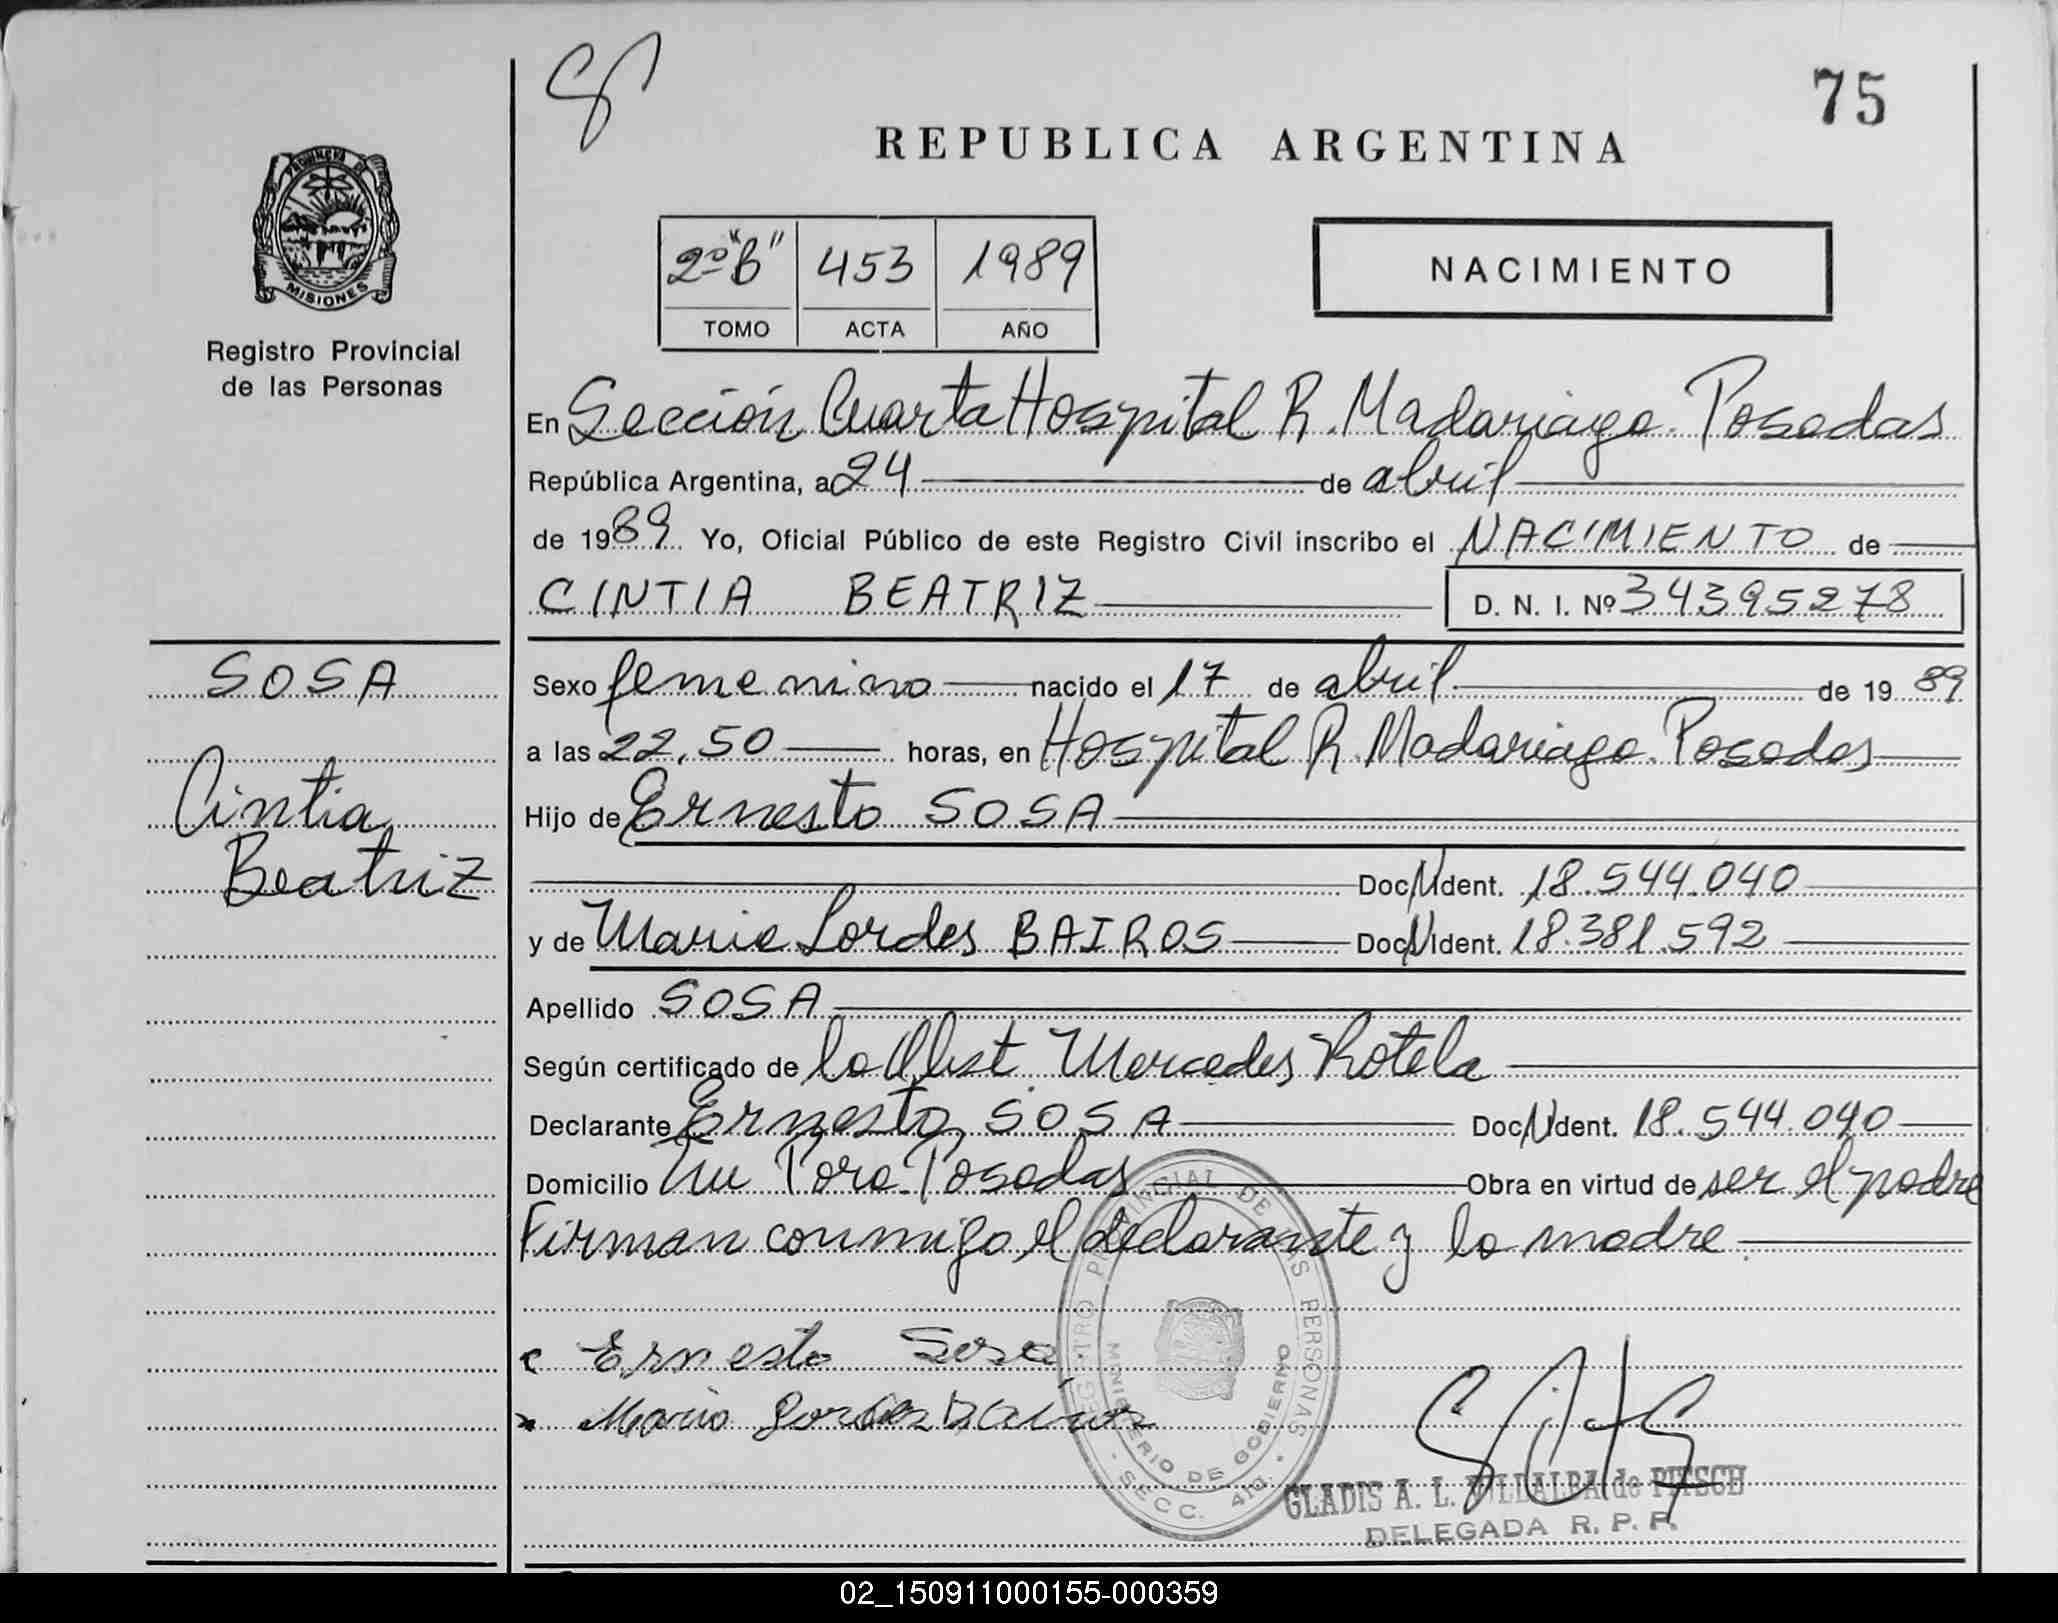 75
REPUBLICA ARGENTINA
PROVINCIA DE
MISIONES
Registro Provincial
de las Personas
2º "B" 453 1989
TOMO ACTA AÑO
NACIMIENTO
En Sección Cuarta Hospital R. Madariaga. Posadas
República Argentina, a 24 de abril
de 1989 Yo, Oficial Público de este Registro Civil inscribo el NACIMIENTO de
CINTIA BEATRIZ D. N. I. Nº 34395278
SOSA
Cintia
Beatriz
Sexo femenino nacido el 17 de abril de 1989
a las 22,50 horas, en Hospital R. Madariaga. Posadas
Hijo de Ernesto SOSA
Doc. Ident. 18.544.040
y de Maria Lordes BAIROS Doc. Ident. 18.381.592
Apellido SOSA
Según certificado de la Obst. Mercedes Rotela
Declarante Ernesto SOSA Doc. Ident. 18.544.040
Domicilio Ñu Pora. Posadas Obra en virtud de ser el padre
Firman conmigo el declarante y la madre
Ernesto Sosa
Maria
REGISTRO PROVINCIAL DE LAS PERSONAS
MINISTERIO DE GOBIERNO
SECC. 4ta.
GLADIS A. L. VILLALBA de PITSCH
DELEGADA R. P. P.
02_150911000155-000359